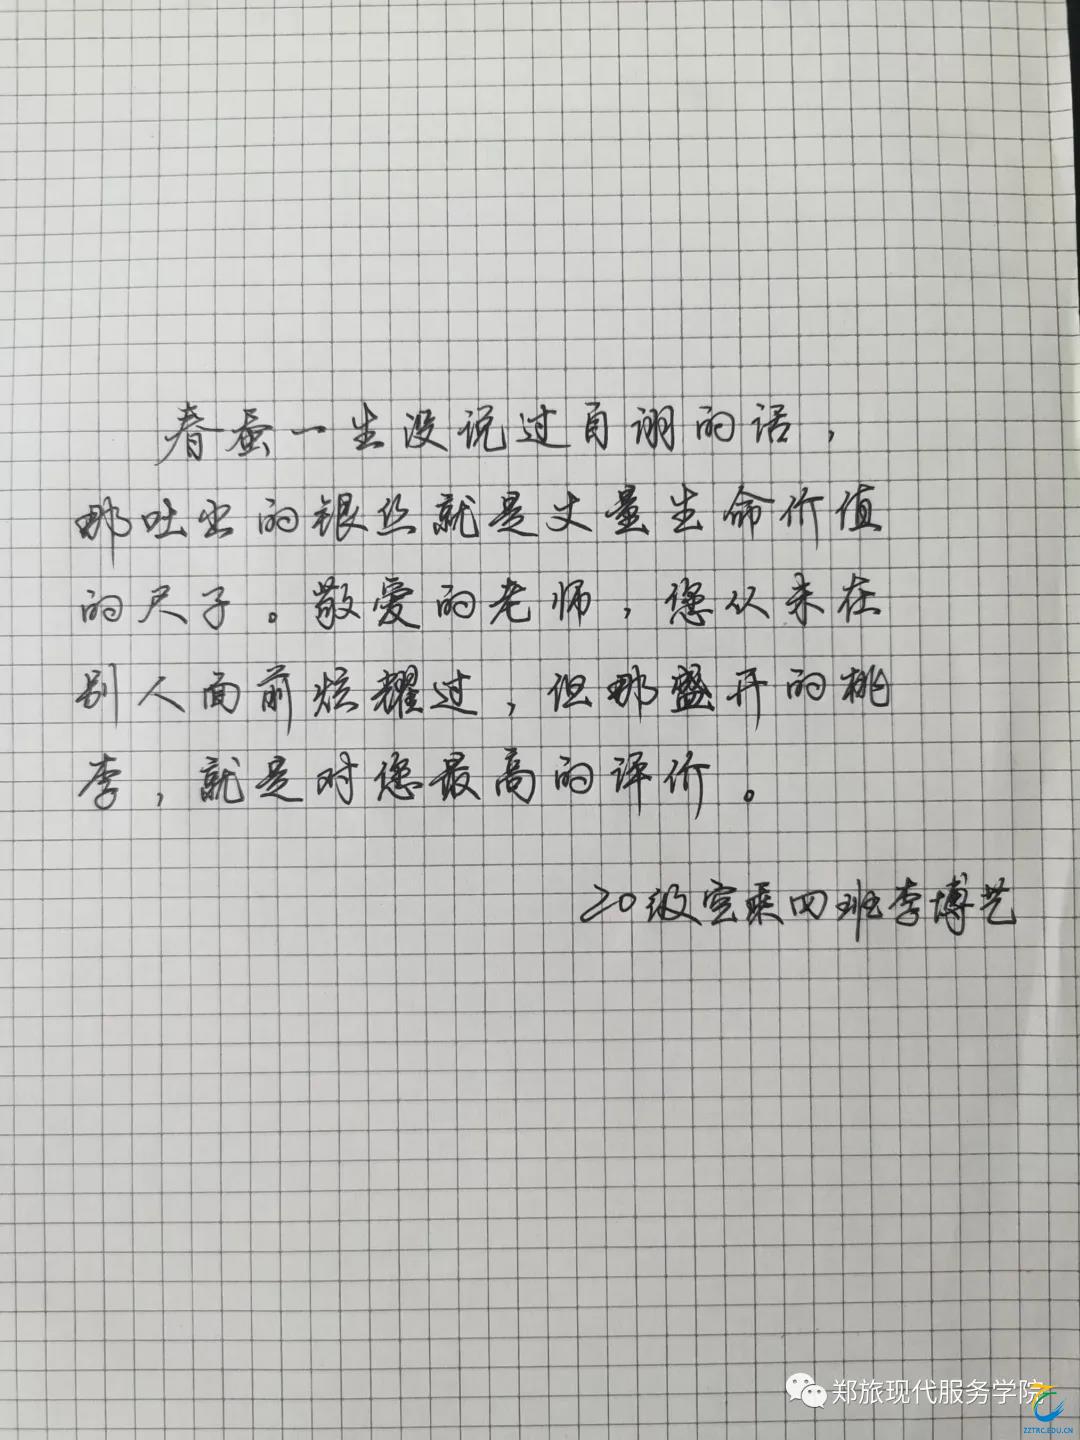 春蚕一生没说过自诩的话，
那吐出的银丝就是丈量生命价值
的尺子。敬爱的老师，您从未在
别人面前炫耀过，但那盛开的桃
李，就是对您最高的评价。
20级空乘四班李博艺
郑旅现代服务学院
ZZTRC.EDU.CN